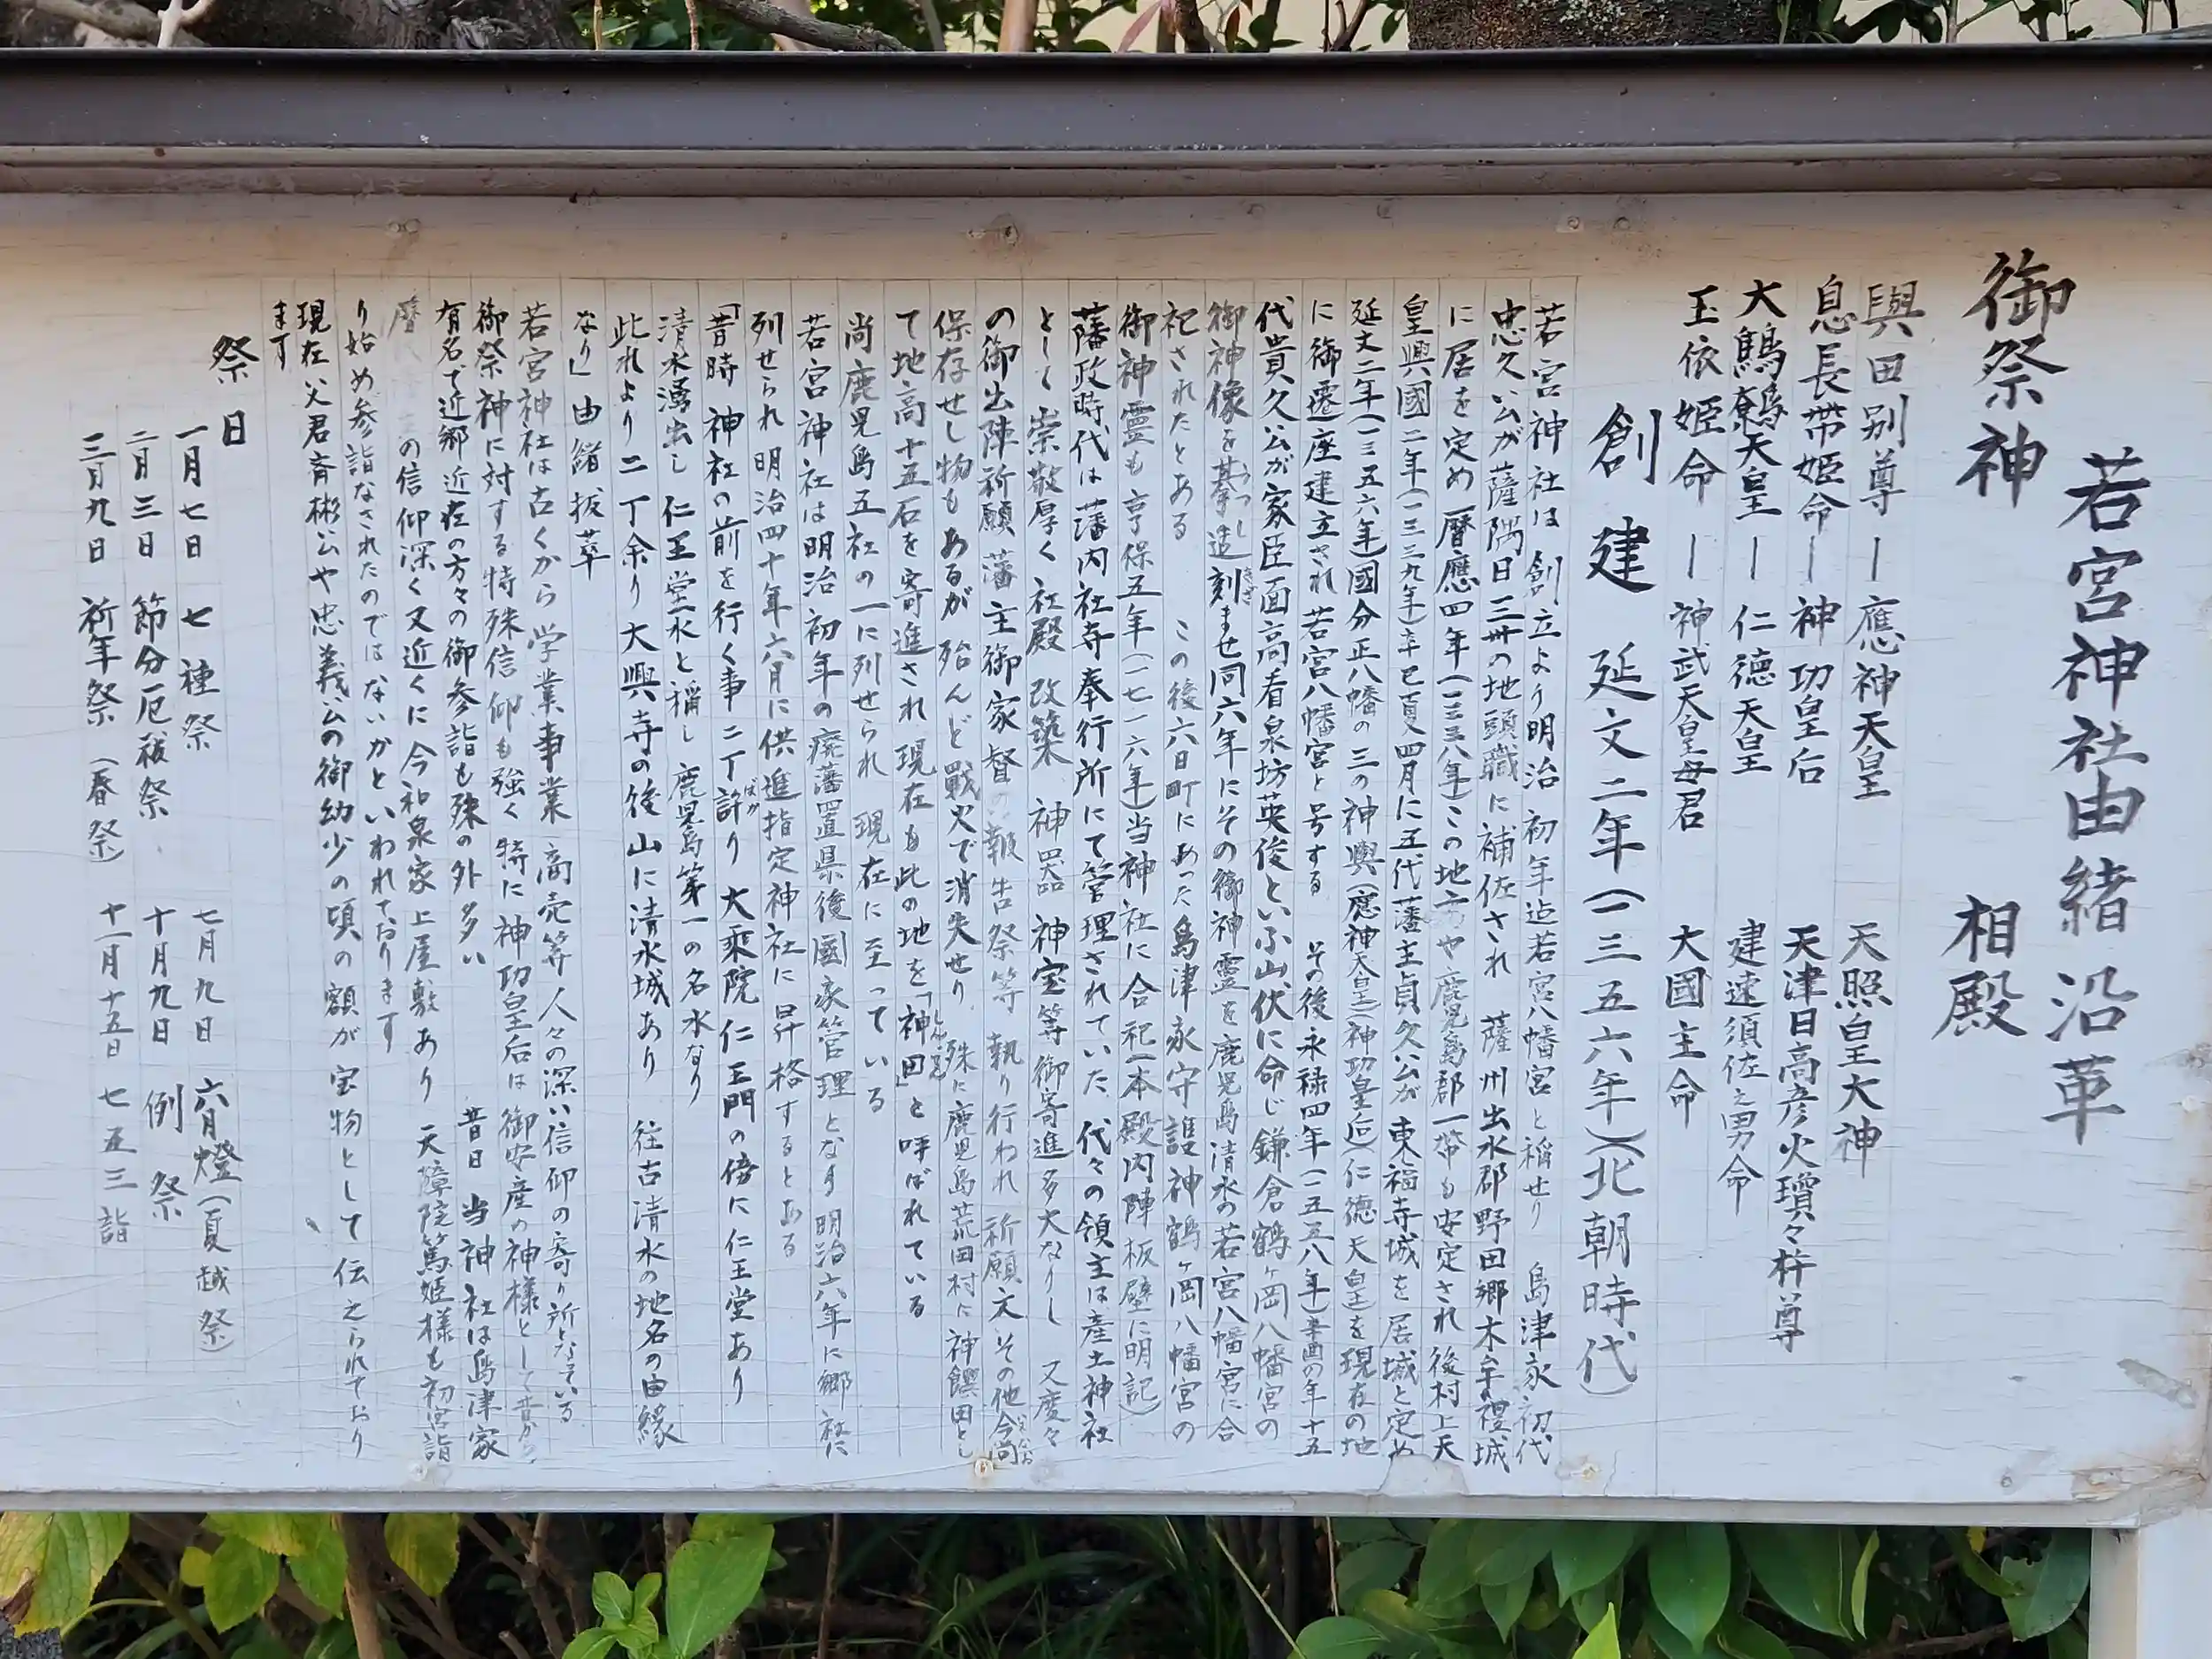 若宮神社由緒沿革
御祭神
與田別尊ー應神天皇
息長帯姫命ー神功皇后
大鷦鷯天皇ー仁徳天皇
玉依姫命ー神武天皇母君
相殿
天照皇大神
天津日高彦火瓊々杵尊
建速須佐之男命
大國主命
創建 延文二年(一三五六年)(北朝時代)
若宮神社は創立より明治初年迠若宮八幡宮と稱せり 島津家初代
忠久公が薩隅日三卅の地頭職に補佐され 薩州出水郡野田郷木牟禮城
に居を定め暦應四年(一三三八年)この地方や鹿児島郡一帯も安定され後村上天
皇興國二年(一三三九年)辛巳夏四月に五代藩主貞久公が東福寺城を居城と定め
延文二年(一三五六年)國分正八幡の三の神輿(應神天皇)(神功皇后)(仁徳天皇)を現在の地
に御遷座建立され若宮八幡宮と号する その後永禄四年(一五五八年)辛酉の年十五
代貴久公が家臣面高看泉坊英俊といふ山伏に命じ鎌倉鶴ヶ岡八幡宮の
御神像を摹造刻ませ同六年にその御神霊を鹿児島清水の若宮八幡宮に合
祀されたとある この後六日町にあった島津永守護神鶴ヶ岡八幡宮の
御神霊も享保五年(一七一六年)当神社に合祀(本殿内陣板壁に明記)
藩政時代は藩内社寺奉行所にて管理されていた 代々の領主は産土神社
として崇敬厚く社殿改築 神器 神宝等御寄進多大なりし 又度々
の御出陣祈願 藩主御家督の報告祭等 執り行われ 祈願文その他今尚
保存せし物もあるが 殆んど戰火で消失せり 殊に鹿児島荒田村に神饌田とし
て地高十五石を寄進され現在も此の地を「神田」と呼ばれている
尚鹿児島五社の一に列せられ 現在に至っている
若宮神社は明治初年の廃藩置県後國家管理となす明治六年に郷社に
列せられ明治四十年六月に供進指定神社に昇格するとある
「昔時 神社の前を行く事二丁許り 大乘院仁王門の傍に仁王堂あり
清水湧出し 仁王堂水と稱し 鹿児島第一の名水なり
此れより二丁余り大興寺の後山に清水城あり 往古清水の地名の由縁
なり」由緒抜萃
若宮神社は古くから学業事業 商売等人々の深い信仰の寄り所となっている
御祭神に対する特殊信仰も強く 特に神功皇后は御安産の神様として昔から
有名で近郷近在の方々の御参詣も殊の外多い 昔日 当神社は島津家
暦の信仰深く又近くに今和泉家上屋敷あり 天障院篤姫様も初宮詣
り始め参詣なされたのではないかといわれております
現在父君斉彬公や忠義公の御幼少の頃の額が宝物として伝えられており
ます
祭日
一月七日 七種祭
二月三日 節分厄祓祭
三月九日 祈年祭(春祭)
七月九日 六月燈(夏越祭)
十月九日 例祭
十一月十五日 七五三詣